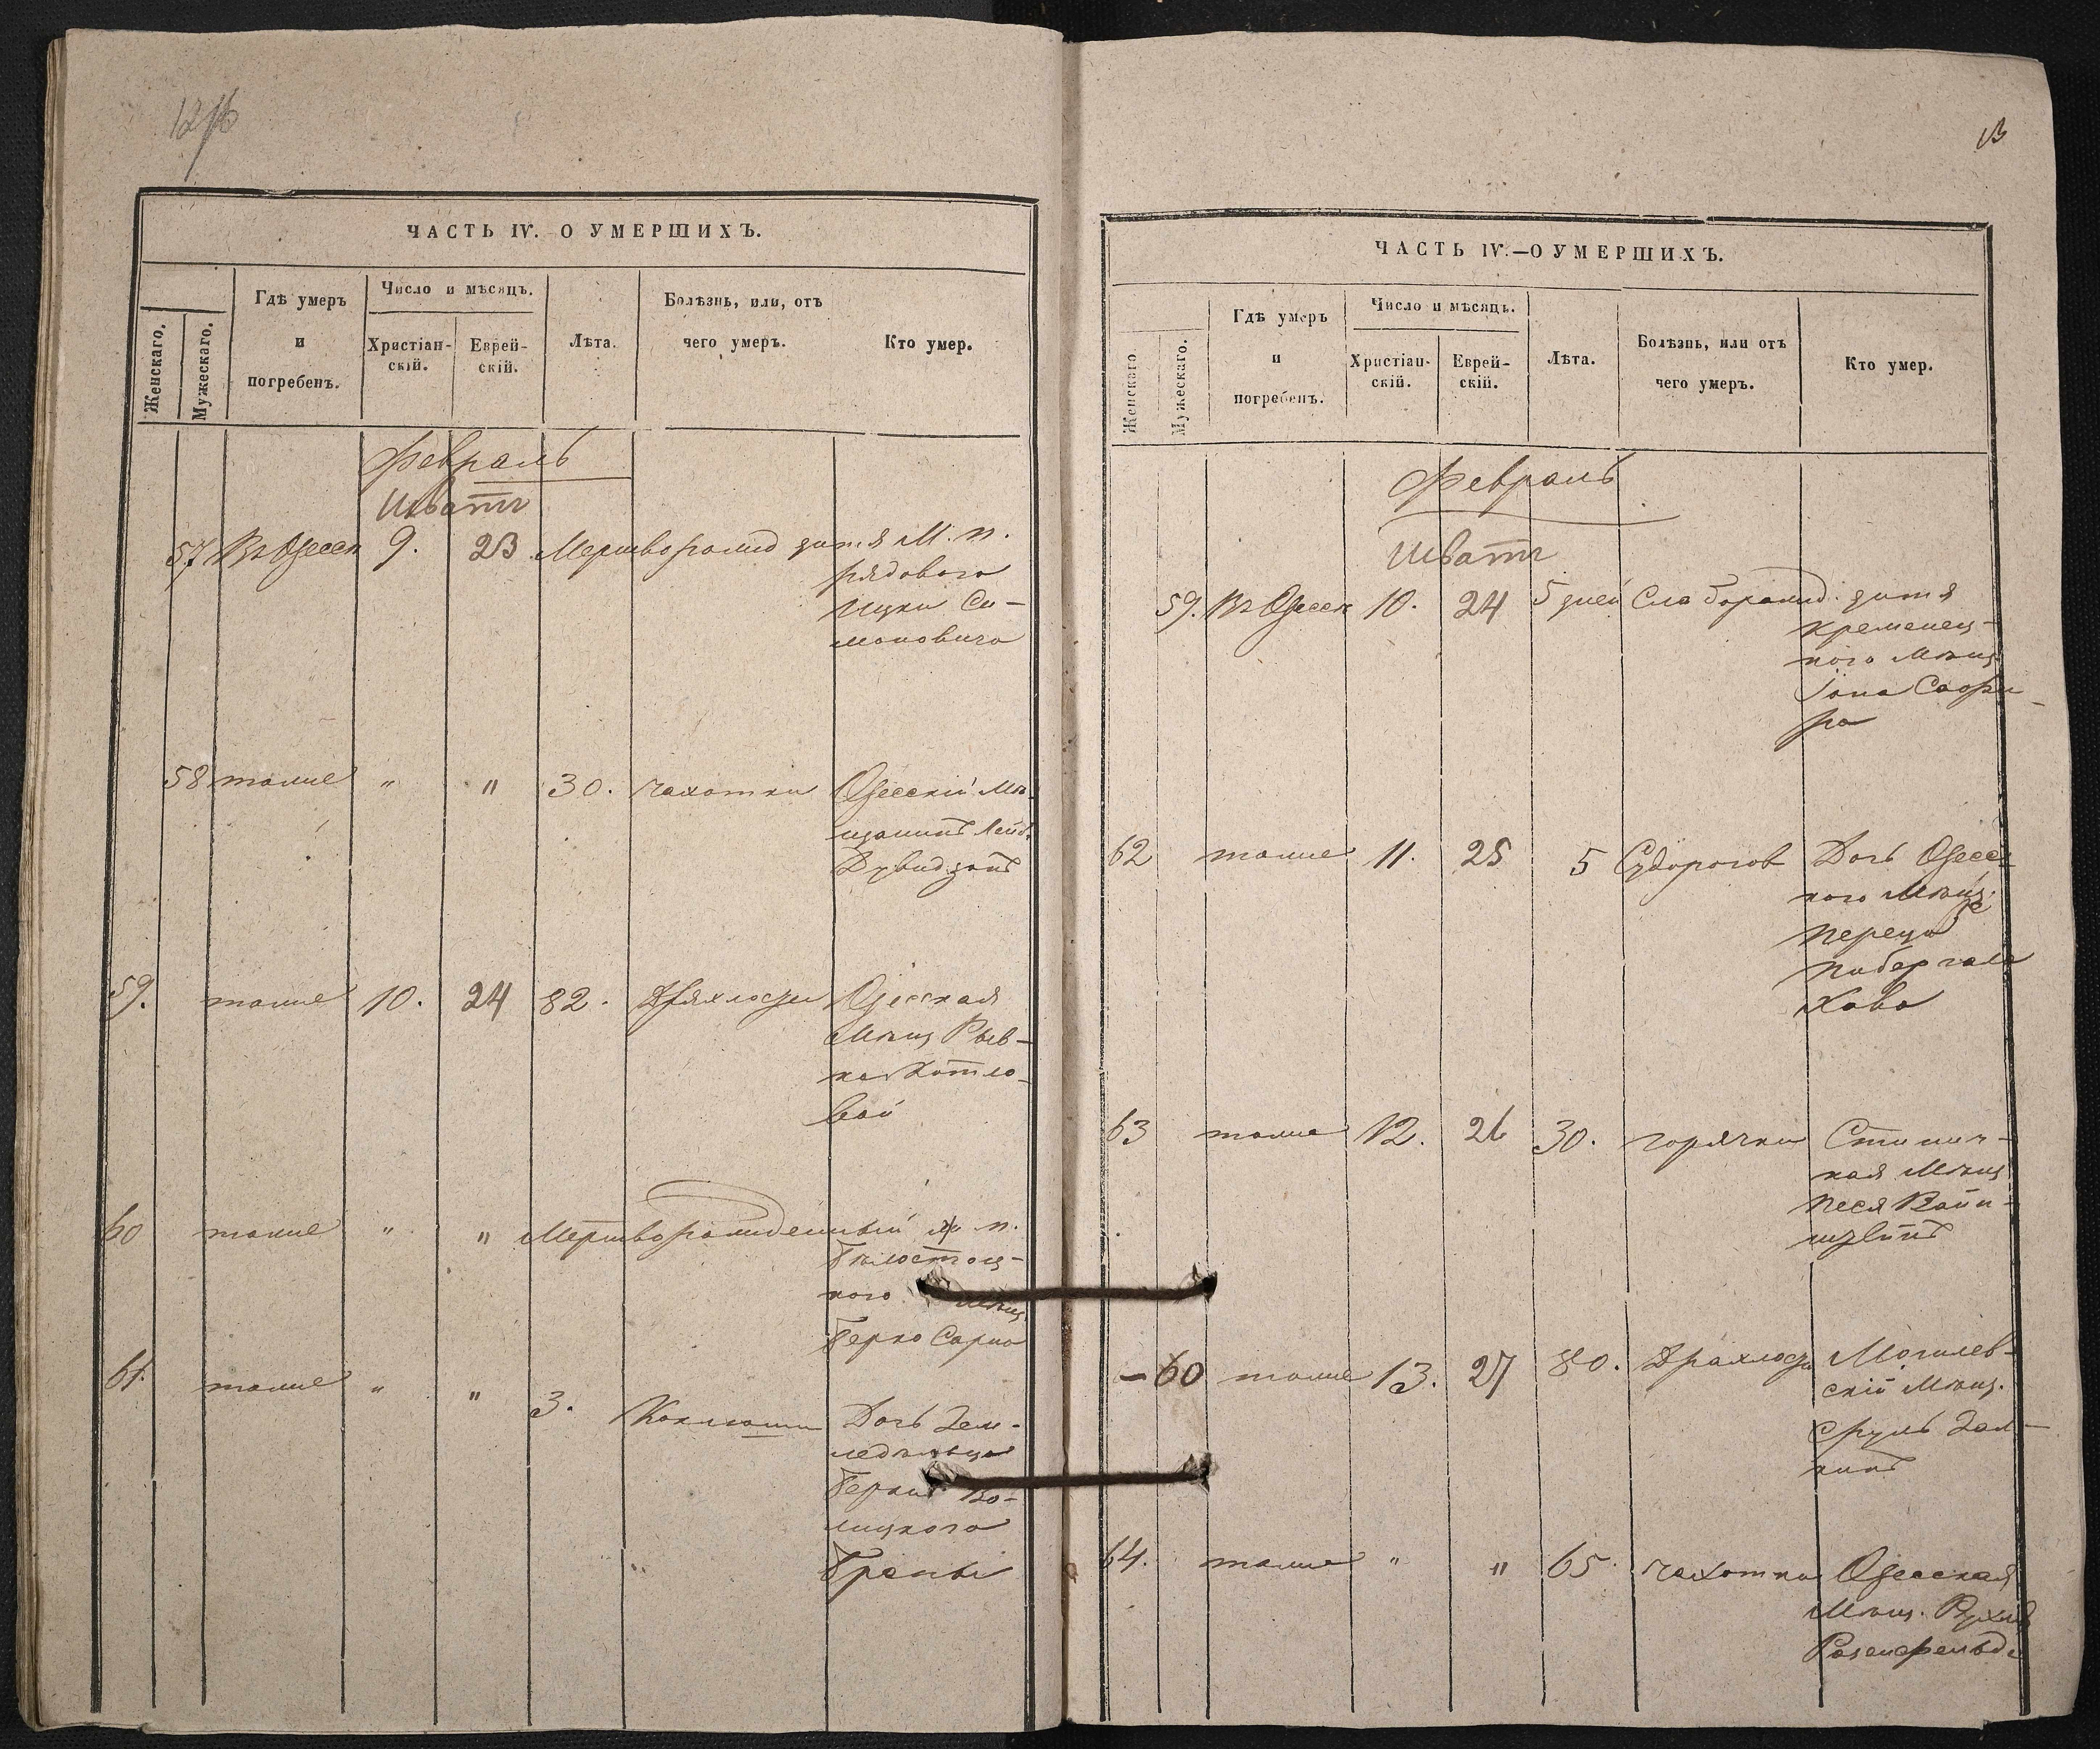 ЧАСТЬ IV. О УМЕРШИХЪ.
Женскаго.
Мужескаго.
Гдѣ умеръ
и
погребенъ.
Число и мѣсяцъ.
Христіан-
скій.
Еврей-
скій.
Лѣта.
Болѣзнь, или, отъ
чего умеръ.
Кто умер.
Февраль
Шватъ
57 Въ Одессѣ 9. 23 Мертворожд дитя М. п.
рядового
Ицки Си-
моновича
58 тоже " " 30. чахотки Одесскій Мѣ-
щанинъ Лейб.
Дувидзонъ
59. тоже 10. 24 82. Дряхлости Одесская
Мѣщ Рыв-
ка Котло-
вай
60 тоже " " Мертворожденный ж п.
Бѣлостоц-
кого мѣщ
Берко Сарно
61. тоже " " 3. Коклюши Дочь Зем-
ледѣльца
Берки Во-
лицкого
Брейны
13
ЧАСТЬ IV.—О УМЕРШИХЪ.
Женскаго.
Мужескаго.
Гдѣ умеръ
и
погребенъ.
Число и мѣсяцъ.
Христіан-
скій.
Еврей-
скій.
Лѣта.
Болѣзнь, или отъ
чего умеръ.
Кто умер.
Февраль
Шватъ
59. Въ Одессѣ 10. 24 5 дней Слаборожд. дитя
кременец-
кого Мѣщ
Іона Сафи-
ра
62 тоже 11. 25 5 Судорогов Дочь Одесс-
кого Мѣщ.
Переца
Хава
63 тоже 12. 26 30. горячки
кая Мѣщ
Песя Вайн-
–60 тоже 13. 27 80. Драхлости Могилев-
скій Мѣщ.
Сруль Зал-
кинъ
64. тоже " " 65. чахотки Одесская
Мѣщ. Рухля
Розенфельдъ